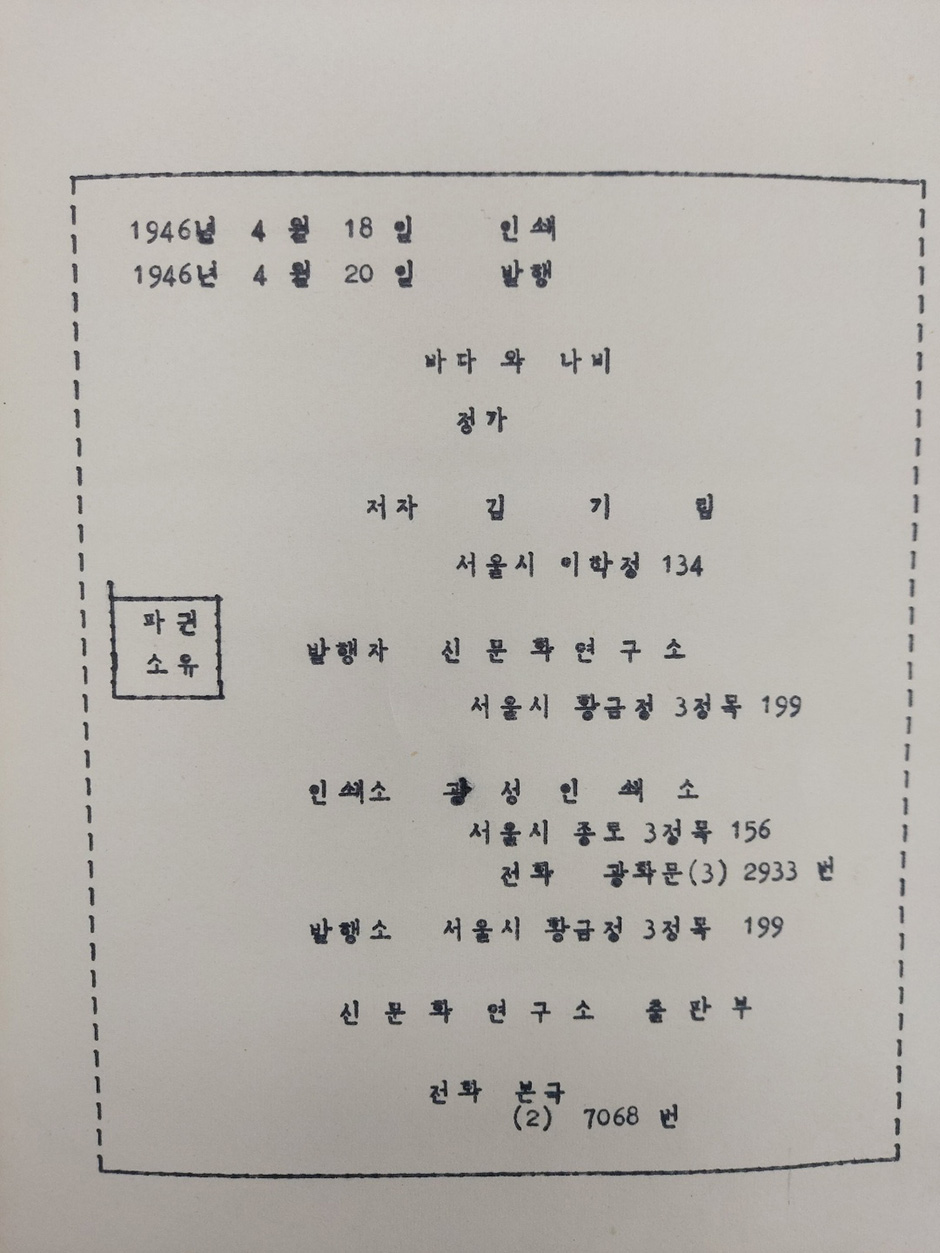 1946년 4 월 18 일 인쇄
1946년 4 월 20 일 발행
바다 와 나비
정가
저자 김 기 림
서울시 이학정 134
파권
소유
발행자 신 문 화 연 구 소
서울시 황금정 3정목 199
인쇄소 광 성 인 쇄 소
서울시 종로 3정목 156
전화 광화문(3) 2933 번
발행소 서울시 황금정 3정목 199
신 문 화 연 구 소 출 판 부
전화 본국
(2) 7068 번